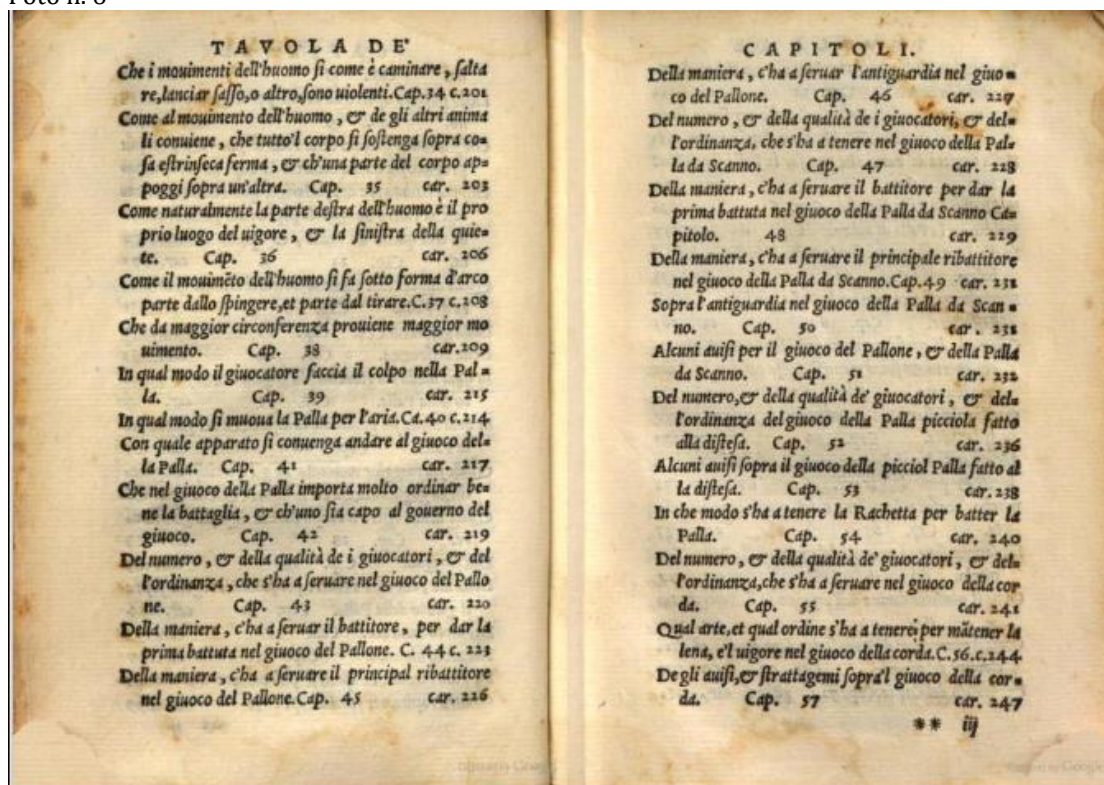 Foto n. 6
TAVOLA DE'
Che i mouimenti dell'huomo si come è caminare, salta
re, lanciar sasso, o altro, sono uiolenti. Cap. 34 c. 201
Come al mouimento dell'huomo, & de gli altri anima
li conuiene, che tutto'l corpo si sostenga sopra co=
sa estrinseca ferma, & ch'una parte del corpo ap=
poggi sopra un'altra. Cap. 35 car. 203
Come naturalmente la parte destra dell'huomo è il pro
prio luogo del uigore, & la sinistra della quie=
te. Cap. 36 car. 206
Come il mouimẽto dell'huomo si fa sotto forma d'arco
parte dallo spingere, et parte dal tirare. C. 37 c. 208
Che da maggior circonferenza prouiene maggior mo
uimento. Cap. 38 car. 209
In qual modo il giuocatore faccia il colpo nella Pal=
la. Cap. 39 car. 215
In qual modo si muoua la Palla per l'aria. Ca. 40 c. 214.
Con quale apparato si conuenga andare al giuoco del=
la Palla. Cap. 41 car. 217
Che nel giuoco della Palla importa molto ordinar be=
ne la battaglia, & ch'uno sia capo al gouerno del
giuoco. Cap. 42 car. 219
Del numero, & della qualità de i giuocatori, & del
l'ordinanza, che s'ha a seruare nel giuoco del Pallo
ne. Cap. 43 car. 220
Della maniera, c'ha a seruar il battitore, per dar la
prima battuta nel giuoco del Pallone. C. 44 c. 223
Della maniera, c'ha a seruare il principal ribattitore
nel giuoco del Pallone. Cap. 45 car. 226
CAPITOLI.
Della maniera, c'ha a seruar l'antiguardia nel giuo=
co del Pallone. Cap. 46 car. 227
Del numero, & della qualità de i giuocatori, & del=
l'ordinanza, che s'ha a tenere nel giuoco della Pal=
la da Scanno. Cap. 47 car. 228
Della maniera, c'ha a seruare il battitore per dar la
prima battuta nel giuoco della Palla da Scanno Ca=
pitolo. 48 car. 229
Della maniera, c'ha a seruare il principale ribattitore
nel giuoco della Palla da Scanno. Cap. 49 car. 231
Sopra l'antiguardia nel giuoco della Palla da Scan=
no. Cap. 50 car. 231
Alcuni auisi per il giuoco del Pallone, & della Palla
da Scanno. Cap. 51 car. 232
Del numero, & della qualità de' giuocatori, & del=
l'ordinanza del giuoco della Palla picciola fatto
alla distesa. Cap. 52 car. 236
Alcuni auisi sopra il giuoco della picciol Palla fatto al
la distesa. Cap. 53 car. 238
In che modo s'ha a tenere la Rachetta per batter la
Palla. Cap. 54 car. 240
Del numero, & della qualità de' giuocatori, & del=
l'ordinanza, che s'ha a seruare nel giuoco della cor
da. Cap. 55 car. 241
Qual arte, et qual ordine s'ha a tenere; per mãtener la
lena, e'l uigore nel giuoco della corda. C. 56. c. 244.
De gli auisi, & strattagemi sopra'l giuoco della cor=
da. Cap. 57 car. 247
** iij